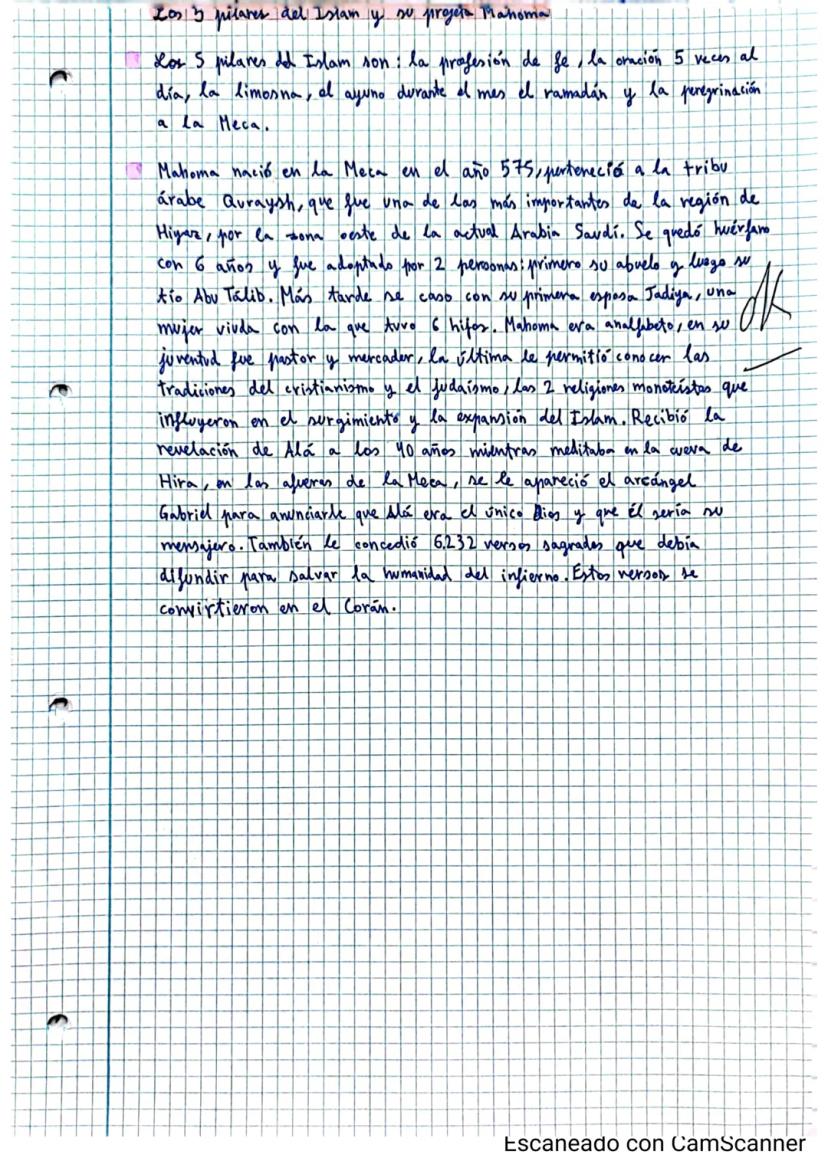 Los 5 pilares del Islam y su profeta Mahoma
Los 5 pilares del Islam son: la profesión de fe, la oración 5 veces al
día, la limosna, el ayuno durante el mes el ramadán y la peregrinación
a la Meca.
Mahoma nació en la Meca en el año 575, perteneció a la tribu
árabe Quraysh, que fue una de las más importantes de la región de
Hiyaz, por la zona oeste de la actual Arabia Saudí. Se quedó huérfano
con 6 años y fue adoptado por 2 personas: primero su abuelo y luego su
tío Abu Tálib. Más tarde se caso con su primera esposa Jadiya, una
mujer viuda con la que tuvo 6 hijos. Mahoma era analfabeto, en su
juventud fue pastor y mercader, la última le permitió conocer las
tradiciones del cristianismo y el judaísmo, las 2 religiones monoteístas que
influyeron en el surgimiento y la expansión del Islam. Recibió la
revelación de Alá a los 40 años mientras meditaba en la cueva de
Hira, en las afueras de la Meca, se le apareció el arcángel
Gabriel para anunciarle que Alá era el único Dios y que él sería su
mensajero. También le concedió 6.232 versos sagrados que debía
difundir para salvar la humanidad del infierno. Estos versos se
convirtieron en el Corán.
Escaneado con CamScanner